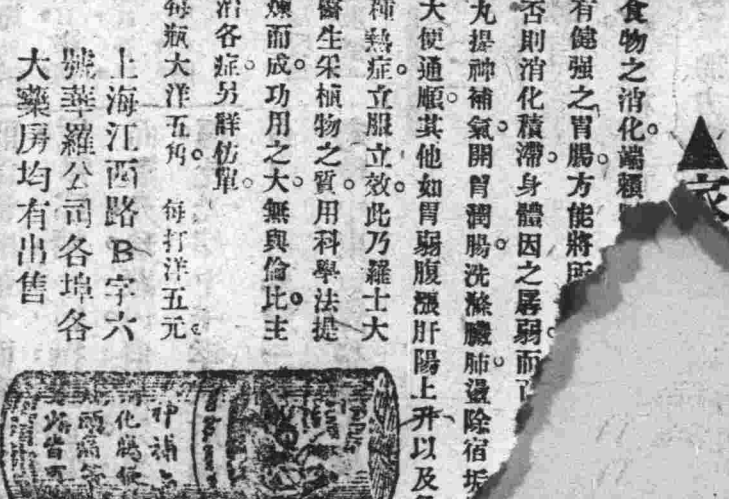 家
食物之消化端賴
有健强之胃腸方能將所
否則消化積滯。身體因之孱弱。而百
丸提神補氣。開胃潤腸。洗滌臟肺。盪除宿垢
大便通順。其他如胃弱腹漲肝陽上升以及
種熱症。立服立效。此乃羅士大
醫生采植物之質。用科學法提
煉而成。功用之大。無與倫比。主
治各症。另詳仿單。
每瓶大洋五角。每打洋五元。
上海江西路B字六
號華羅公司各埠各
大藥房均有出售
神補
化腸
頭痛